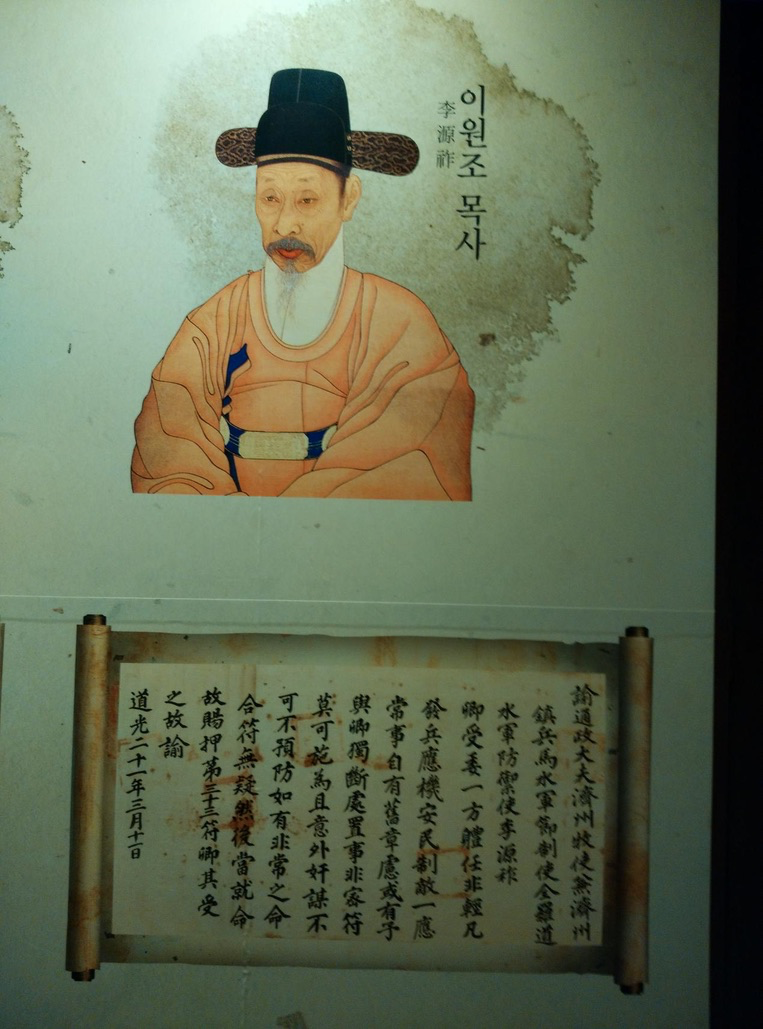 이원조 목사
李源祚
諭通政大夫濟州牧使兼濟州
鎭兵馬水軍節制使全羅道
水軍防禦使李源祚
卿受委一方體任非輕凡
發兵應機安民制敵一應
常事自有舊章慮或有予
與卿獨斷處置事非密符
莫可施為且意外奸謀不
可不預防如有非常之命
合符無疑然後當就命
故賜押第三十三符卿其受
之故諭
道光二十一年三月十一日